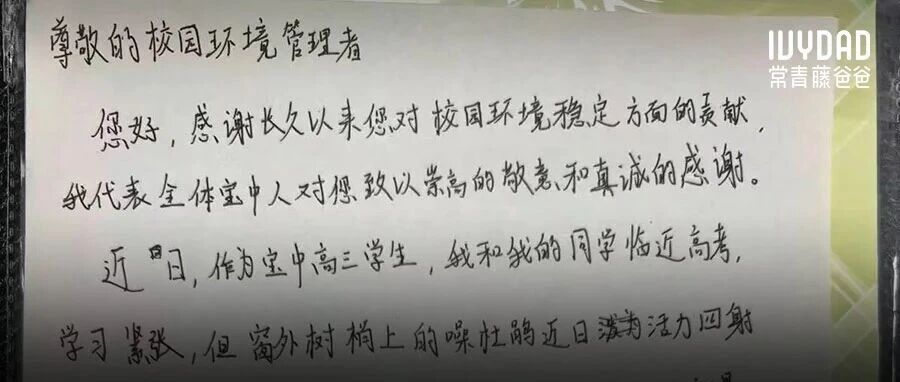 IVYDAD
常青藤爸爸
尊敬的校园环境管理者
您好，感谢长久以来您对校园环境稳定方面的贡献，
我代表全体宝中人对您致以崇高的敬意和真诚的感谢。
近日，作为宝中高三学生，我和我的同学临近高考，
学习紧张，但窗外树梢上的噪杜鹃近日活力四射